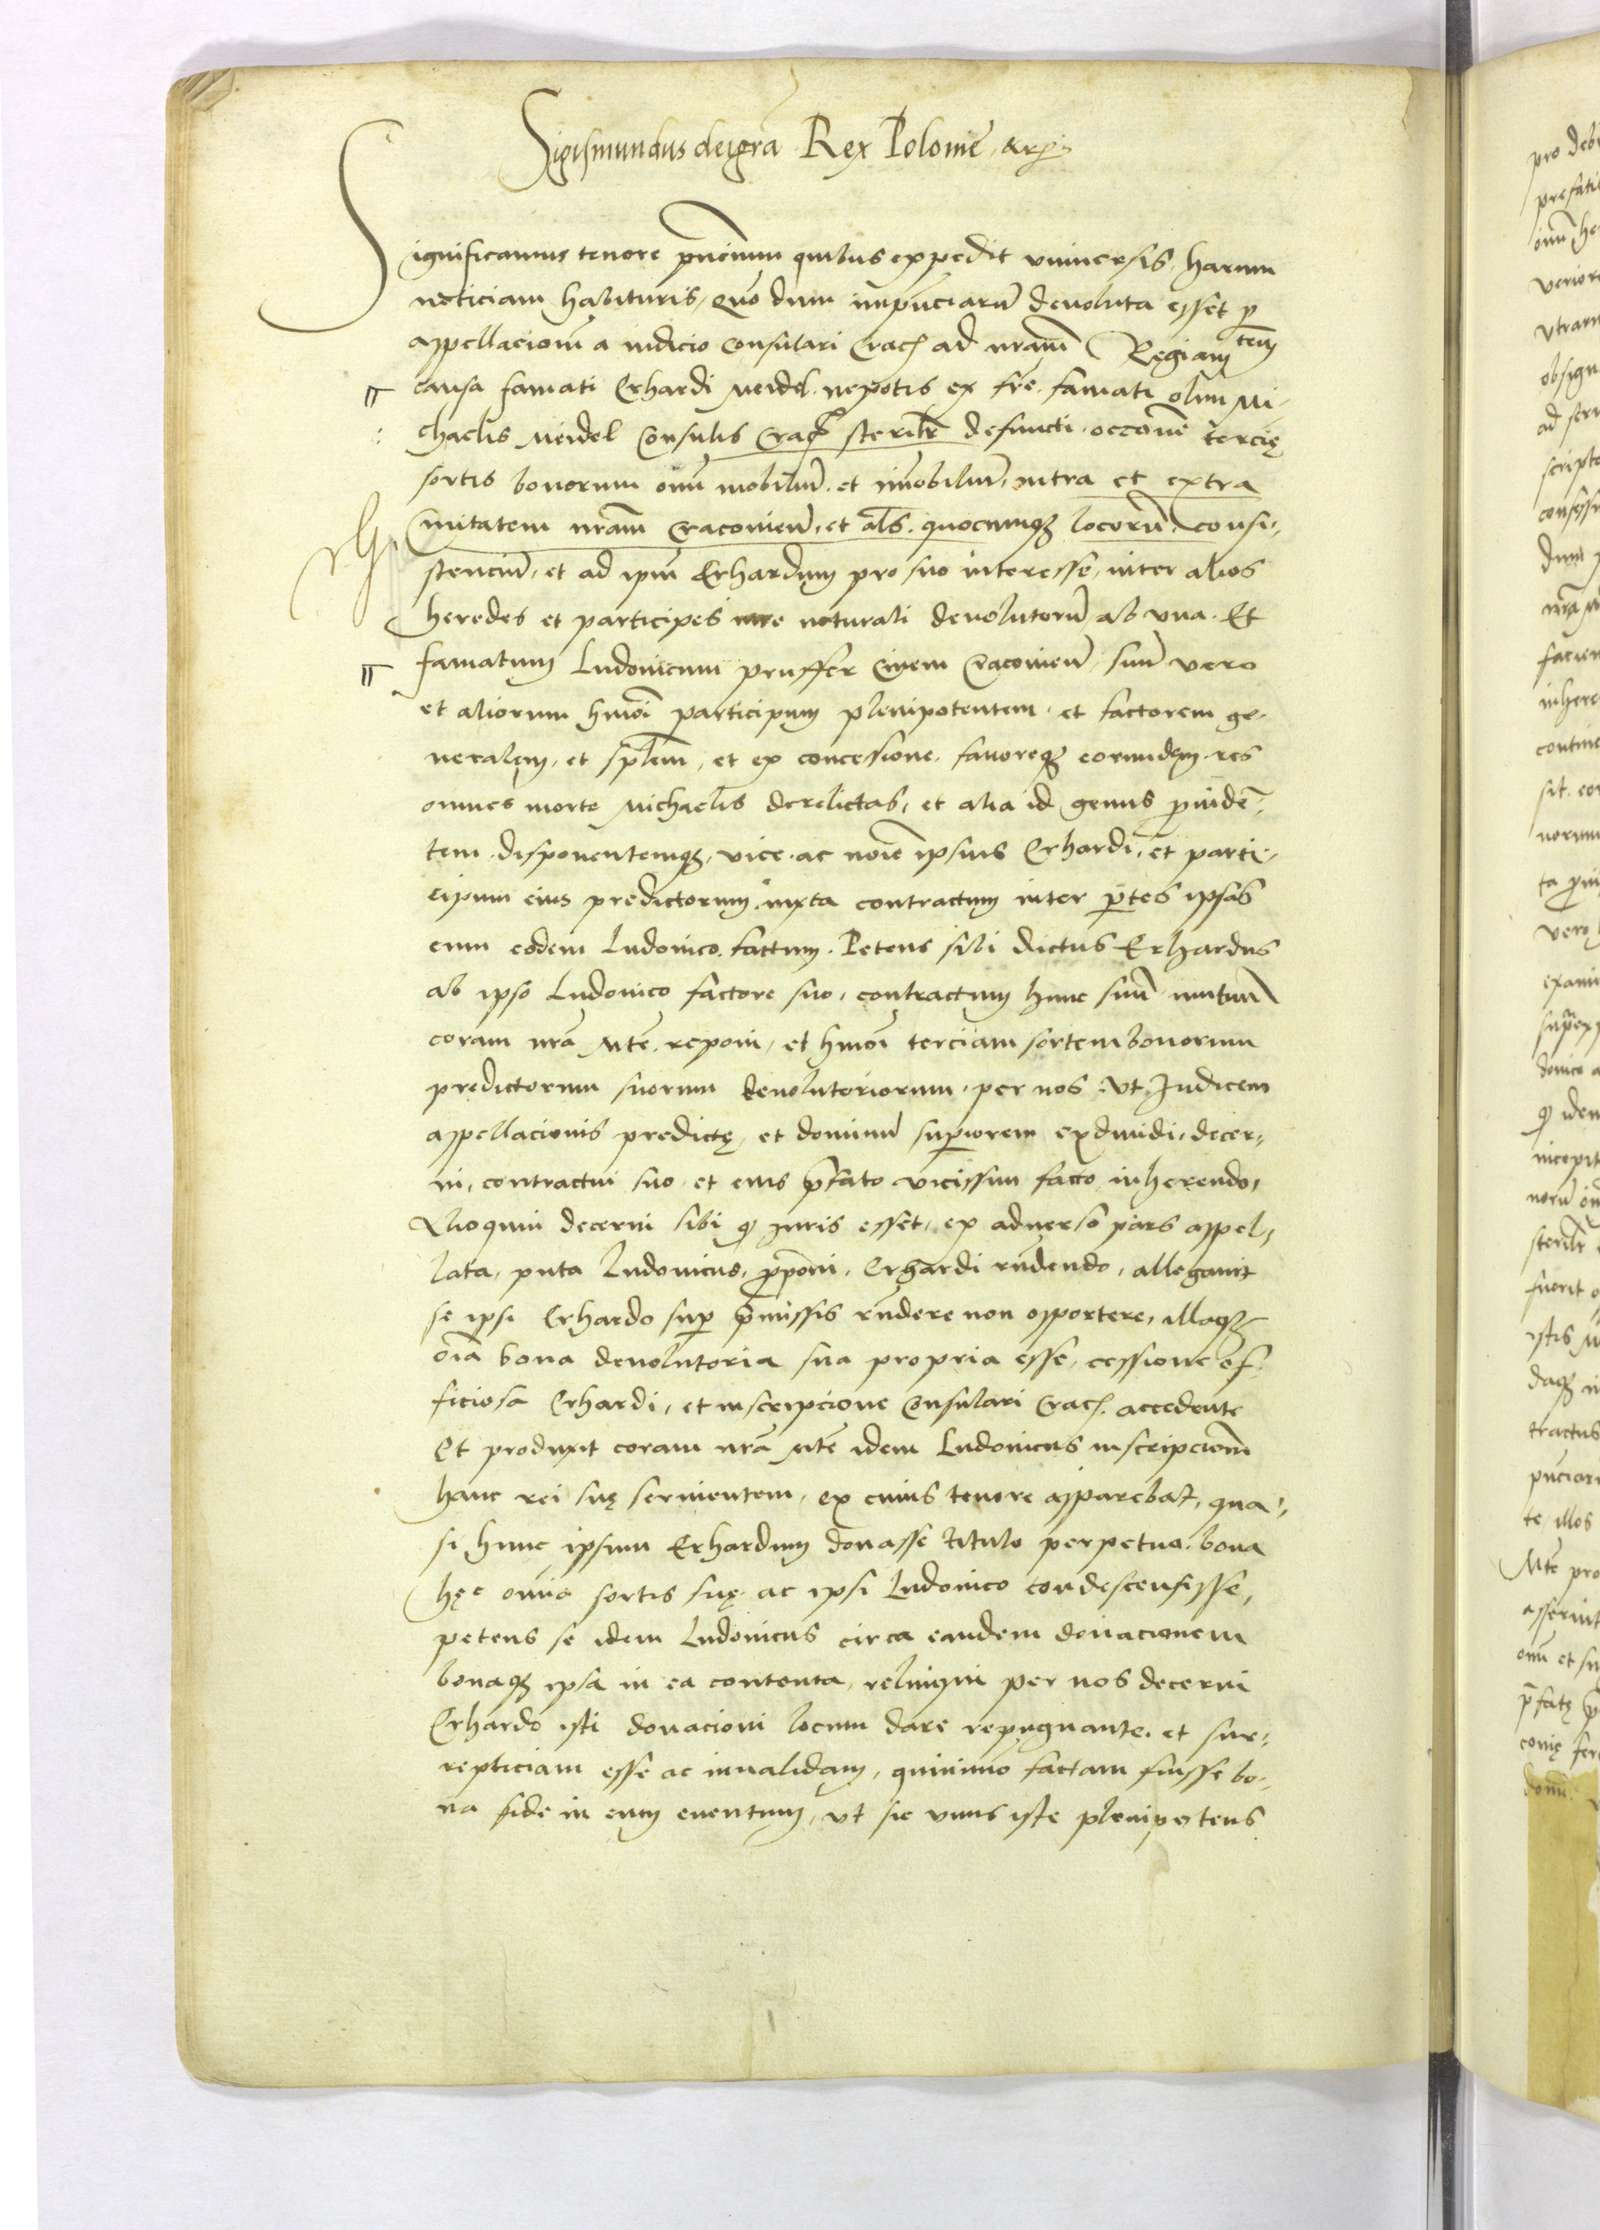 Sigismundus dei gra Rex Polonie &c
Significamus tenore pncium quibus expedit vniuersis harum
noticiam habituris, Quo dum impnciarū deuoluta esset p
appellacionē a iudicio Consulari Crac ad nram Regiam tem
causa famati Erhardi Meidel nepotis ex fre famati olim Mi-
chaelis Meidel Consulis Crac steriłr defuncti occone tercię
sortis bonorum oīm mobiliū et imobiliū, intra et extra
Ciuitatem nram Cracouień, et als quocunq3 locorū consi-
stenciū, et ad ipm Erhardum pro suo interesse, inter alios
heredes et participes iure naturali deuolutorū ab vna. Et
famatum Ludouicum pruffer Ciuem Cracouień, suū vero
et aliorum hmoi participum plenipotentem et factorem ge-
neralem, et splem, et ex concessione fauoreq3 eorundem res
omnes morte Michaelis derelictas, et alia id genus puidē-
tem disponentemq3, vice ac noīe ipsius Erhardi, et parti-
cipum eius predictorum iuxta contractum inter ptes ipsas
cum eodem Ludouico factum. Petens sibi dictus Erhardus
ab ipso Ludouico factore suo, contractum hunc suū mutuū
coram nra Mte reponi, et hmoi terciam sortem bonorum
predictorum suorum deuolutoriorum per nos vt Iudicem
appellacionis predictę, et dominū supiorem exdiuidi, decer-
ni, contractui suo et eius pfato vicissim facto inherendo,
Alioquin decerni sibi q iuris esset, ex aduerso pars appel-
lata, puta Ludouicus, pponi Erhardi rñdendo, allegauit
se ipsi Erhardo sup pmissis rñdere non opportere, illaq3
oīa bona deuolutoria sua propria esse, cessione of-
ficiosa Erhardi, et inscripcione Consulari Crac accedente
Et produxit coram nra Mte idem Ludouicus inscripcionē
hanc rei suę seruientem, ex cuius tenore apparebat, qua-
si hunc ipsum Erhardum donasse titulo perpetuo bona
hęc omia sortis suę ac ipsi Ludouico condescensisse,
petens se idem Ludouicus circa eandem donacionem
bonaq3 ipsa in ea contenta, relinqui per nos decerni
Erhardo isti donacioni locum dare repugnante, et sur-
repticiam esse ac inualidam, quinimo factam fuisse bo-
na fide in eum euentum, vt sic vnus iste plenipotens